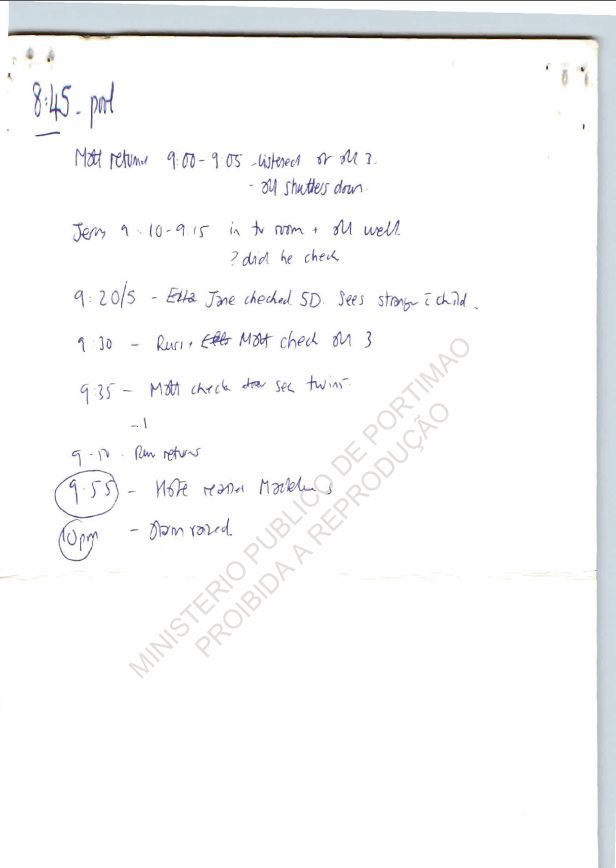 8:45 - pool
Matt returned 9:00-9:05 - listened at all 3.
- all shutters down.
Jerry 9:10-9:15 in tv room + all well
? did he check
9:20/5 - Ella Jane checked 5D. Sees stranger c̄ child.
9:30 - Russ + Ella Matt check all 3
9:35 - Matt check see twins.
- 1
9-10 - Russ returns
9.55 - realised Madeleine
10pm - Alarm raised.
MINISTERIO PUBLICO DE PORTIMAO
PROIBIDA A REPRODUÇÃO